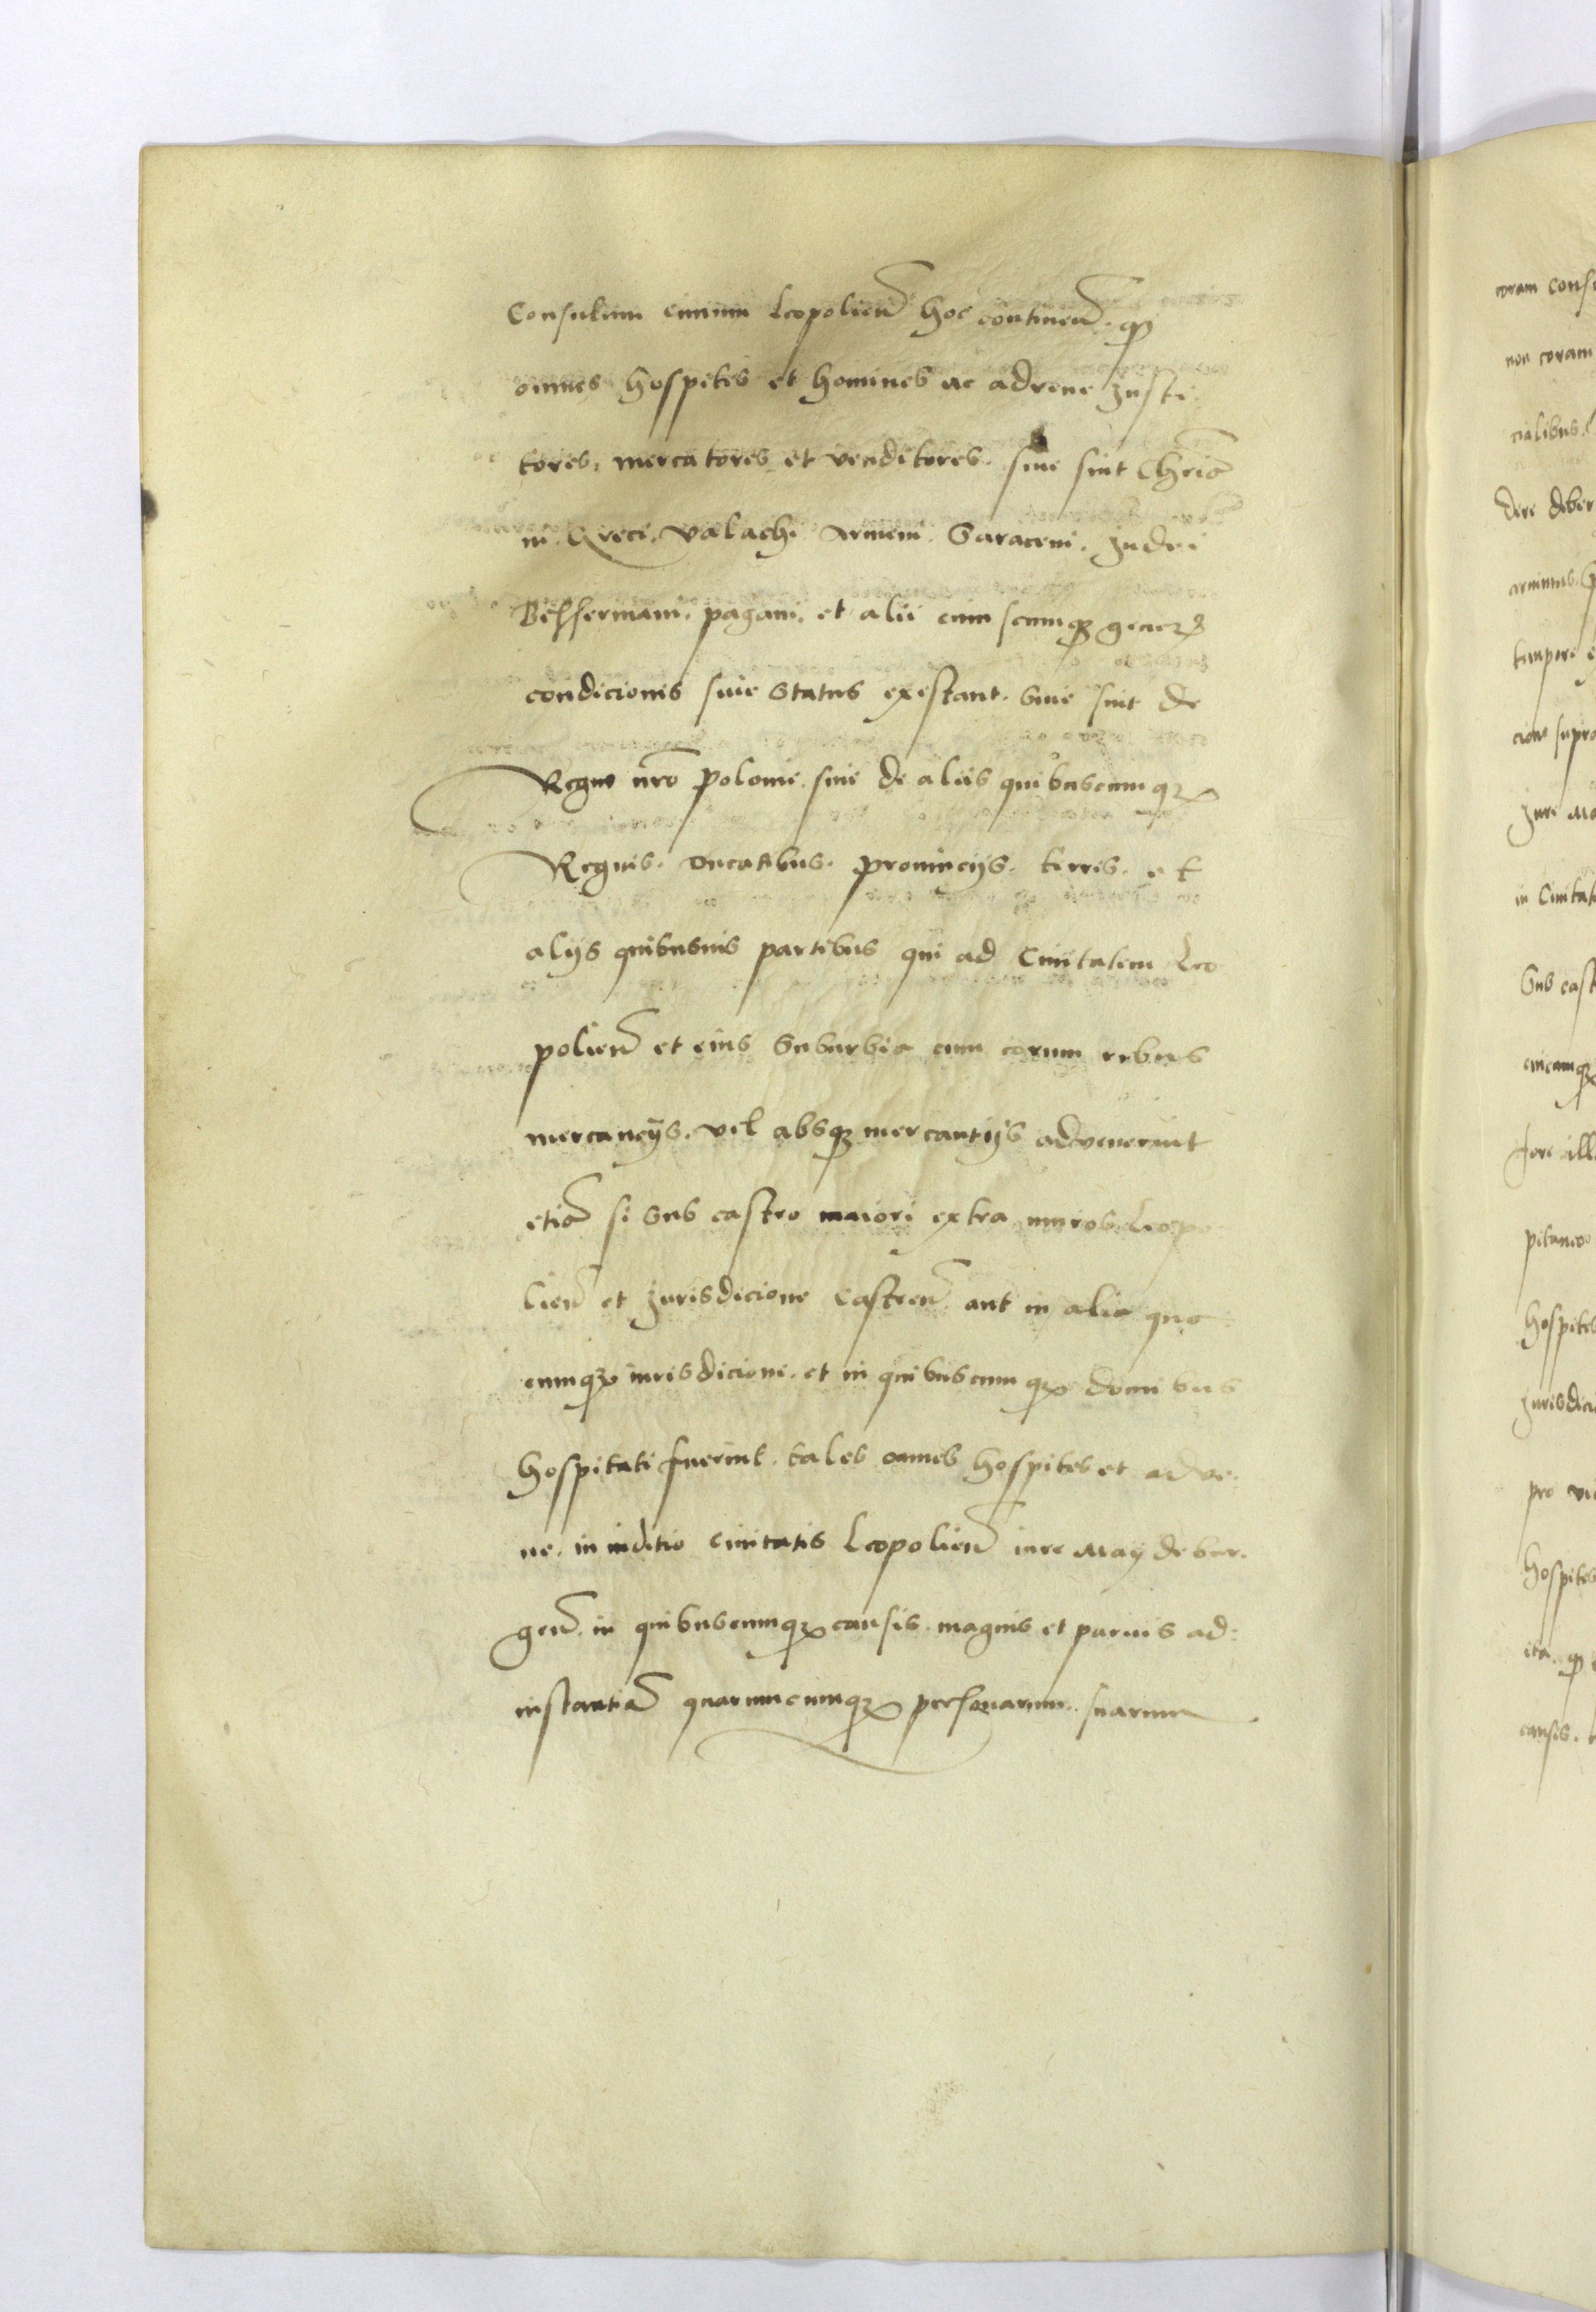 Consulum ciuium Leopolien̄ hoc continen̄. qꝫ
omnes hospites et homines ac advene Insti
tores, mercatores et venditores. siue sint Chr̄ia
ni. Greci. Valachi Armeni. Saraceni. Judei
Bessermani. pagani. et alii cuiuscumqꝫ gener̄
condicionis siue status existant. Siue sint de
Regno nr̄o polonie. siue de aliis quibuscumqꝫ
Regnis. Ducatibus. prouincijs. terris. et
alijs quibusuis partibus qui ad Ciuitatem Leo
polien̄ et eius Suburbia cum eorum rebus
mercancijs. vel absqꝫ mercantijs advenerint
etiā si sub castro maiori extra muros Leopo
lien̄ et Jurisdicione Castren̄. aut in alia qua
cumqꝫ iurisdicione. et in quibuscumqꝫ domibus
hospitati fuerint. tales omnes hospites et adve
ne. in iuditio ciuitatis Leopolien̄ iure Maydebur.
gen̄. in quibuscumqꝫ causis. magnis et paruis ad
instantiā quarumcumqꝫ personarum. suarum
coram Consu
non coram
cialibus.
dere deber
tempore
cione supra
Jure Ma
in Ciuitat
Sub cast
cuicumqꝫ
fore ill
pitaneo
hospites
Jurisdici
pro
hospites
ita. qꝫ
causis.